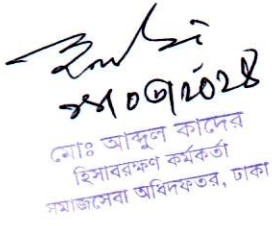 ২০২৪
মোঃ আব্দুল কাদের
হিসাবরক্ষণ কর্মকর্তা
সমাজসেবা অধিদফতর, ঢাকা